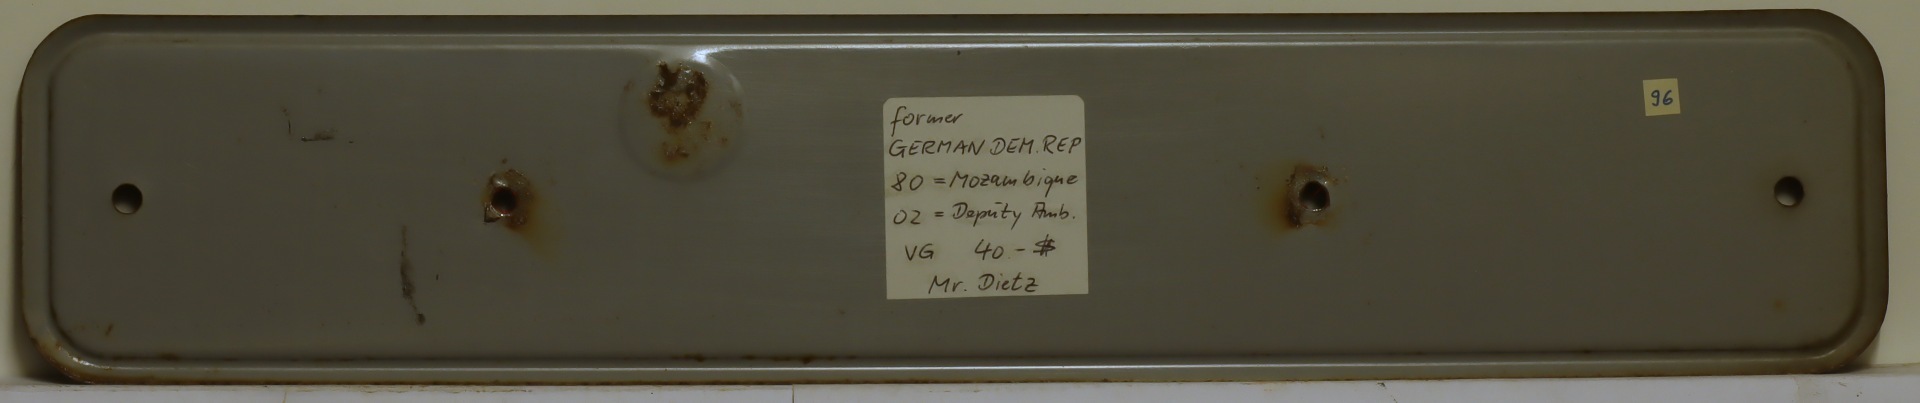 former
GERMAN DEM. REP
80 = Mozambique
02 = Deputy Amb.
VG 40.- $
Mr. Dietz
96